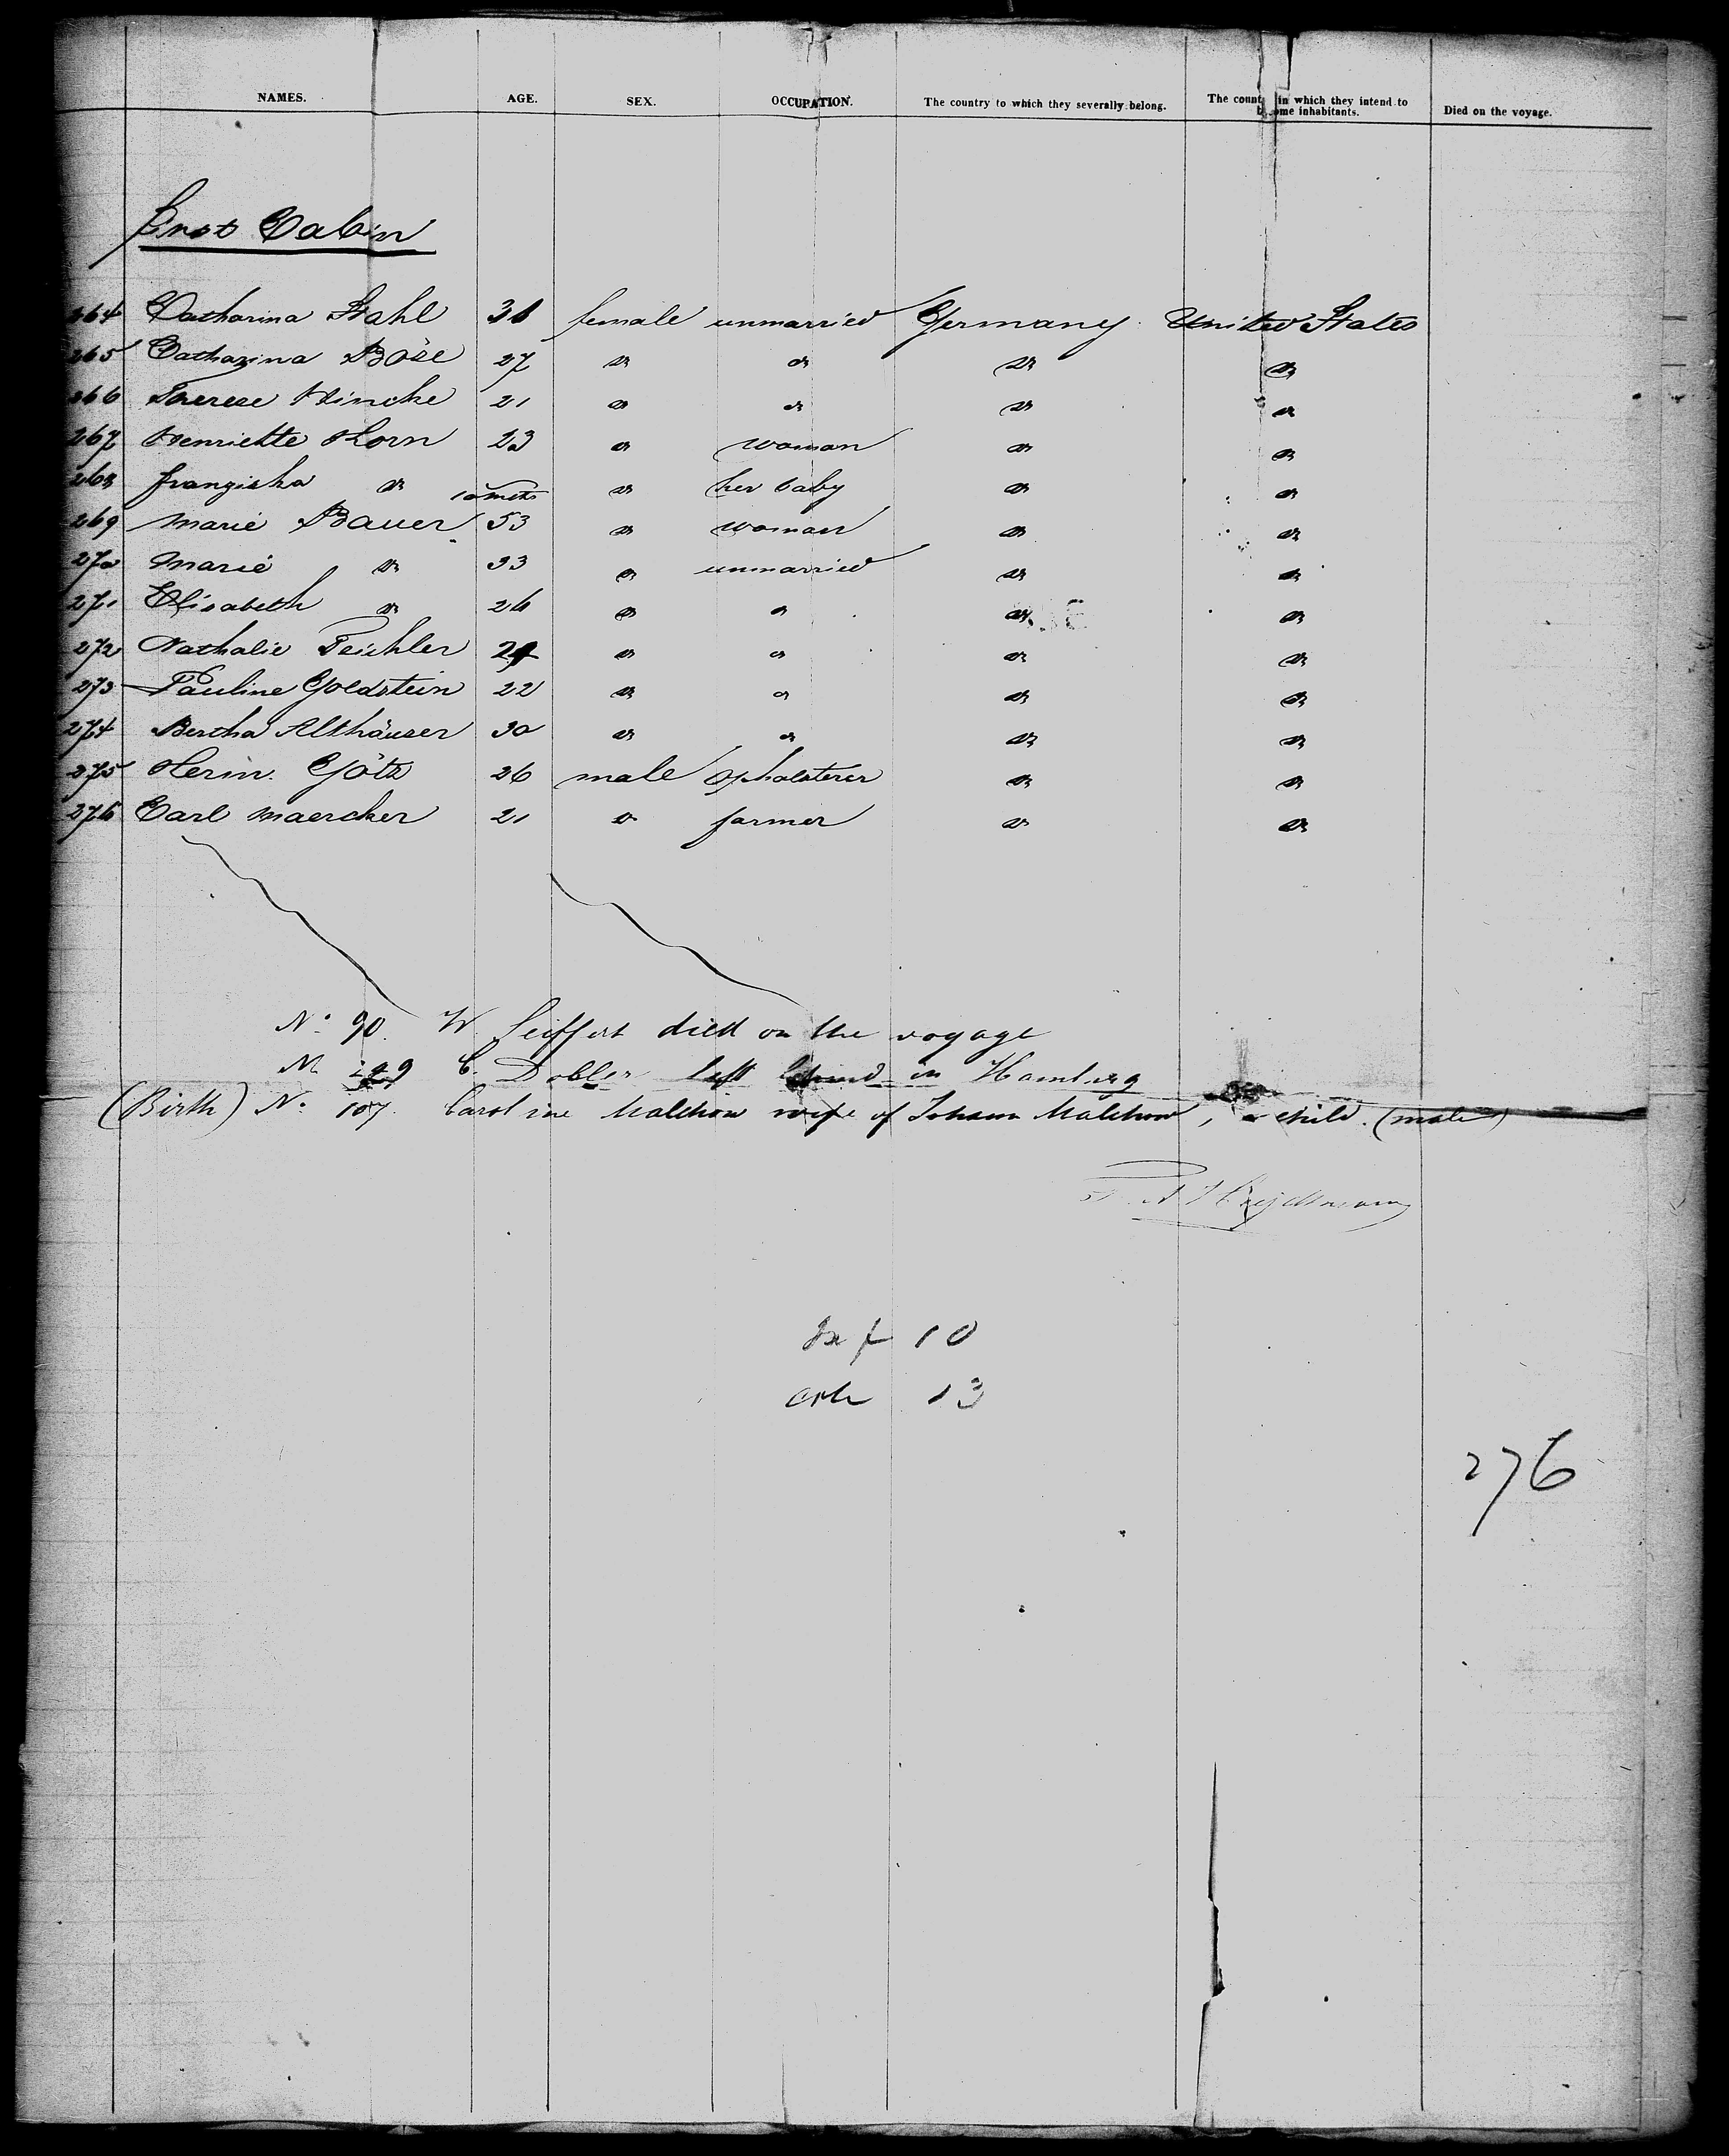 NAMES. AGE. SEX. OCCUPATION. The country to which they severally belong. The count in which they intend to ome inhabitants. Died on the voyage.
First Cabin
264 Catharina Stahl 31 female unmarried Germany. United States
265 Catharina Böse 27 " " " "
266 Therese Hincke 21 " " " "
267 Henriette Korn 23 " woman " "
268 Franziska " 10 mths " her baby " "
269 Marie Bauer 53 " woman " "
270 Marie " 33 " unmarried " "
271 Elisabeth " 26 " " " "
272 Nathalie Teichler 24 " " " "
273 Pauline Goldstein 22 " " " "
274 Bertha Althäuser 30 " " " "
275 Herm. Götz 26 male Upholsterer " "
276 Carl Maercker 21 " farmer " "
No. 90. W. Seiffert died on the voyage
No 149 C. Dobler left behind in Hamburg
(Birth) No. 107. Caroline Malchow wife of Johann Malchow, a child. (male)
10
13
276